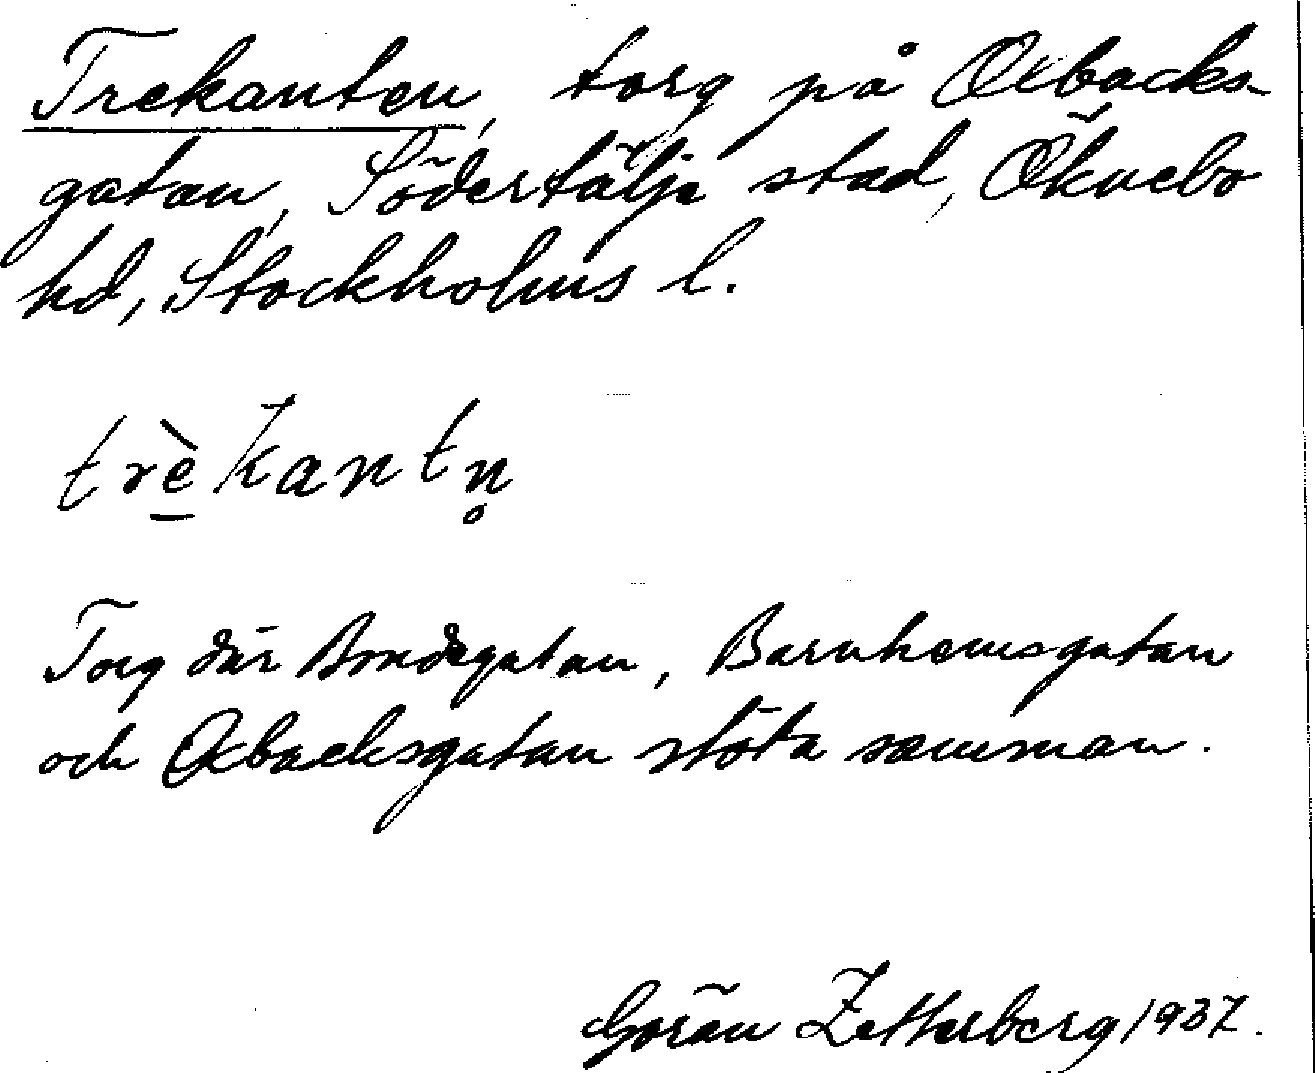 Trekanten, torg på Oxbacks-
gatan, Södertälje stad, Öknebo
hd, Stockholms l.
trèkantn̥
Torg där Bondegatan, Barnhemsgatan
och Oxbacksgatan stöta samman.
Göran Zetterberg 1937.